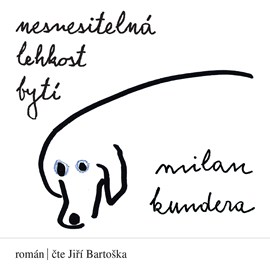 nesnesitelná
lehkost
bytí
milan
kundera
román | čte Jiří Bartoška